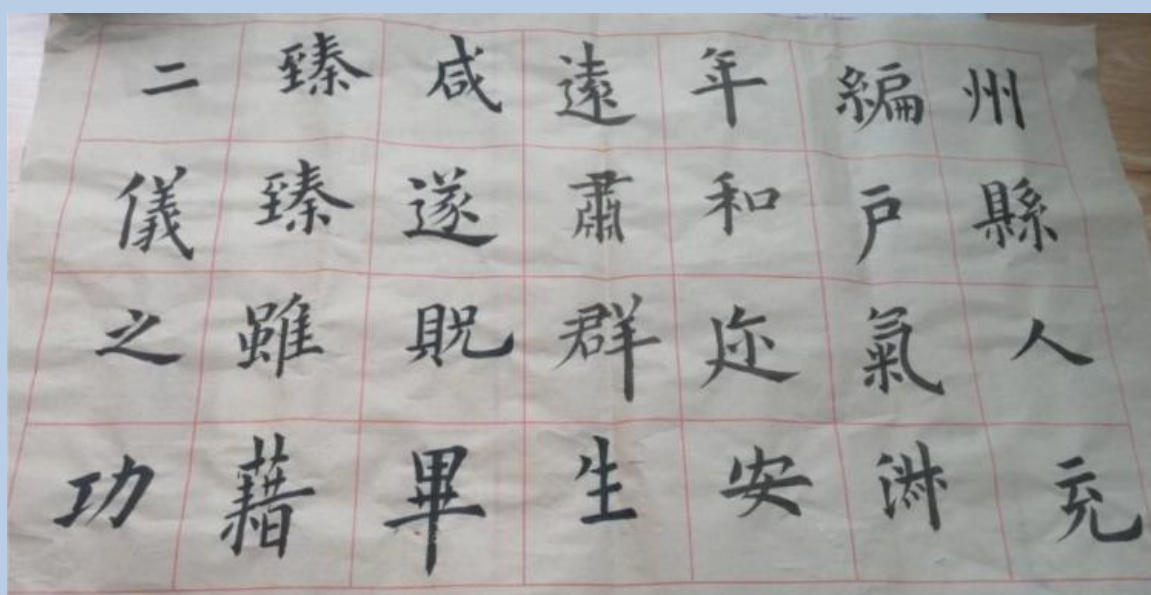 州縣人充
編户氣淑
年和迩安
遠肅群生
咸遂貺畢
臻臻雖藉
二儀之功